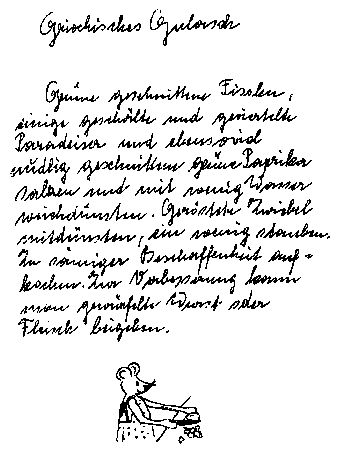 Griechisches Gulasch
Grüne geschnittene Fisolen,
einige geschälte und geviertelte
Paradeiser und ebensoviel
nudlig geschnittene grüne Paprika
salzen und mit wenig Wasser
weichdünsten. Geröstete Zwiebel
mitdünsten, ein wenig stauben.
Zu sämiger Beschaffenheit auf-
kochen. Zur Verbesserung kann
man gewürfelte Wurst oder
Fleisch beigeben.